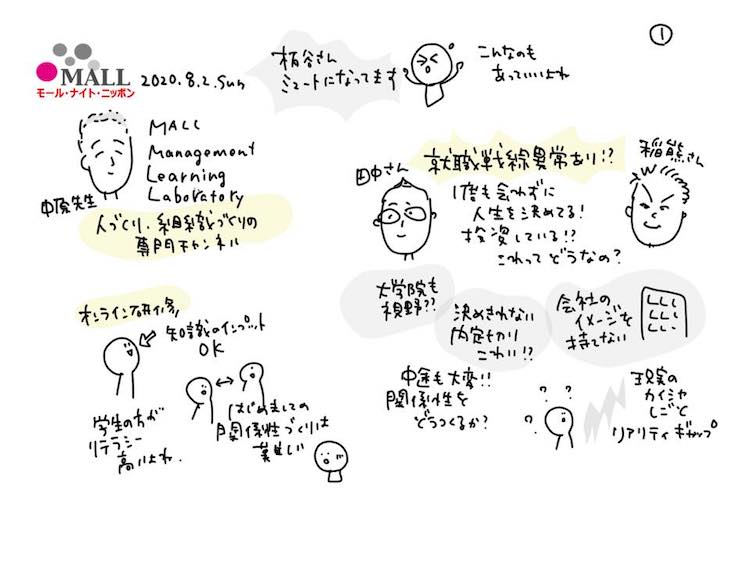 ①
MALL
モール・ナイト・ニッポン
2020.8.2.Sun
柘谷さん
ミュートになってます
こんなのも
あっていいよね
中原先生
MALL
Management
Learning
Laboratory
人づくり、組織づくりの
専門チャンネル
田中さん
就職戦線異常あり!?
稲熊さん
1度も会わずに
人生を決めてる!
投資している!?
これってどうなの?
大学院も
視野??
決めきれない
内定もカリ
こわい!?
会社の
イメージを
持てない
オンライン研修
知識のインプット
OK
学生の方が
リテラシー
高いよね.
はじめましての
関係性づくりは
難しい
中途も大変!!
関係性を
どうつくるか?
? ? ?
現実の
カイシャ
しごと
リアリティギャップ